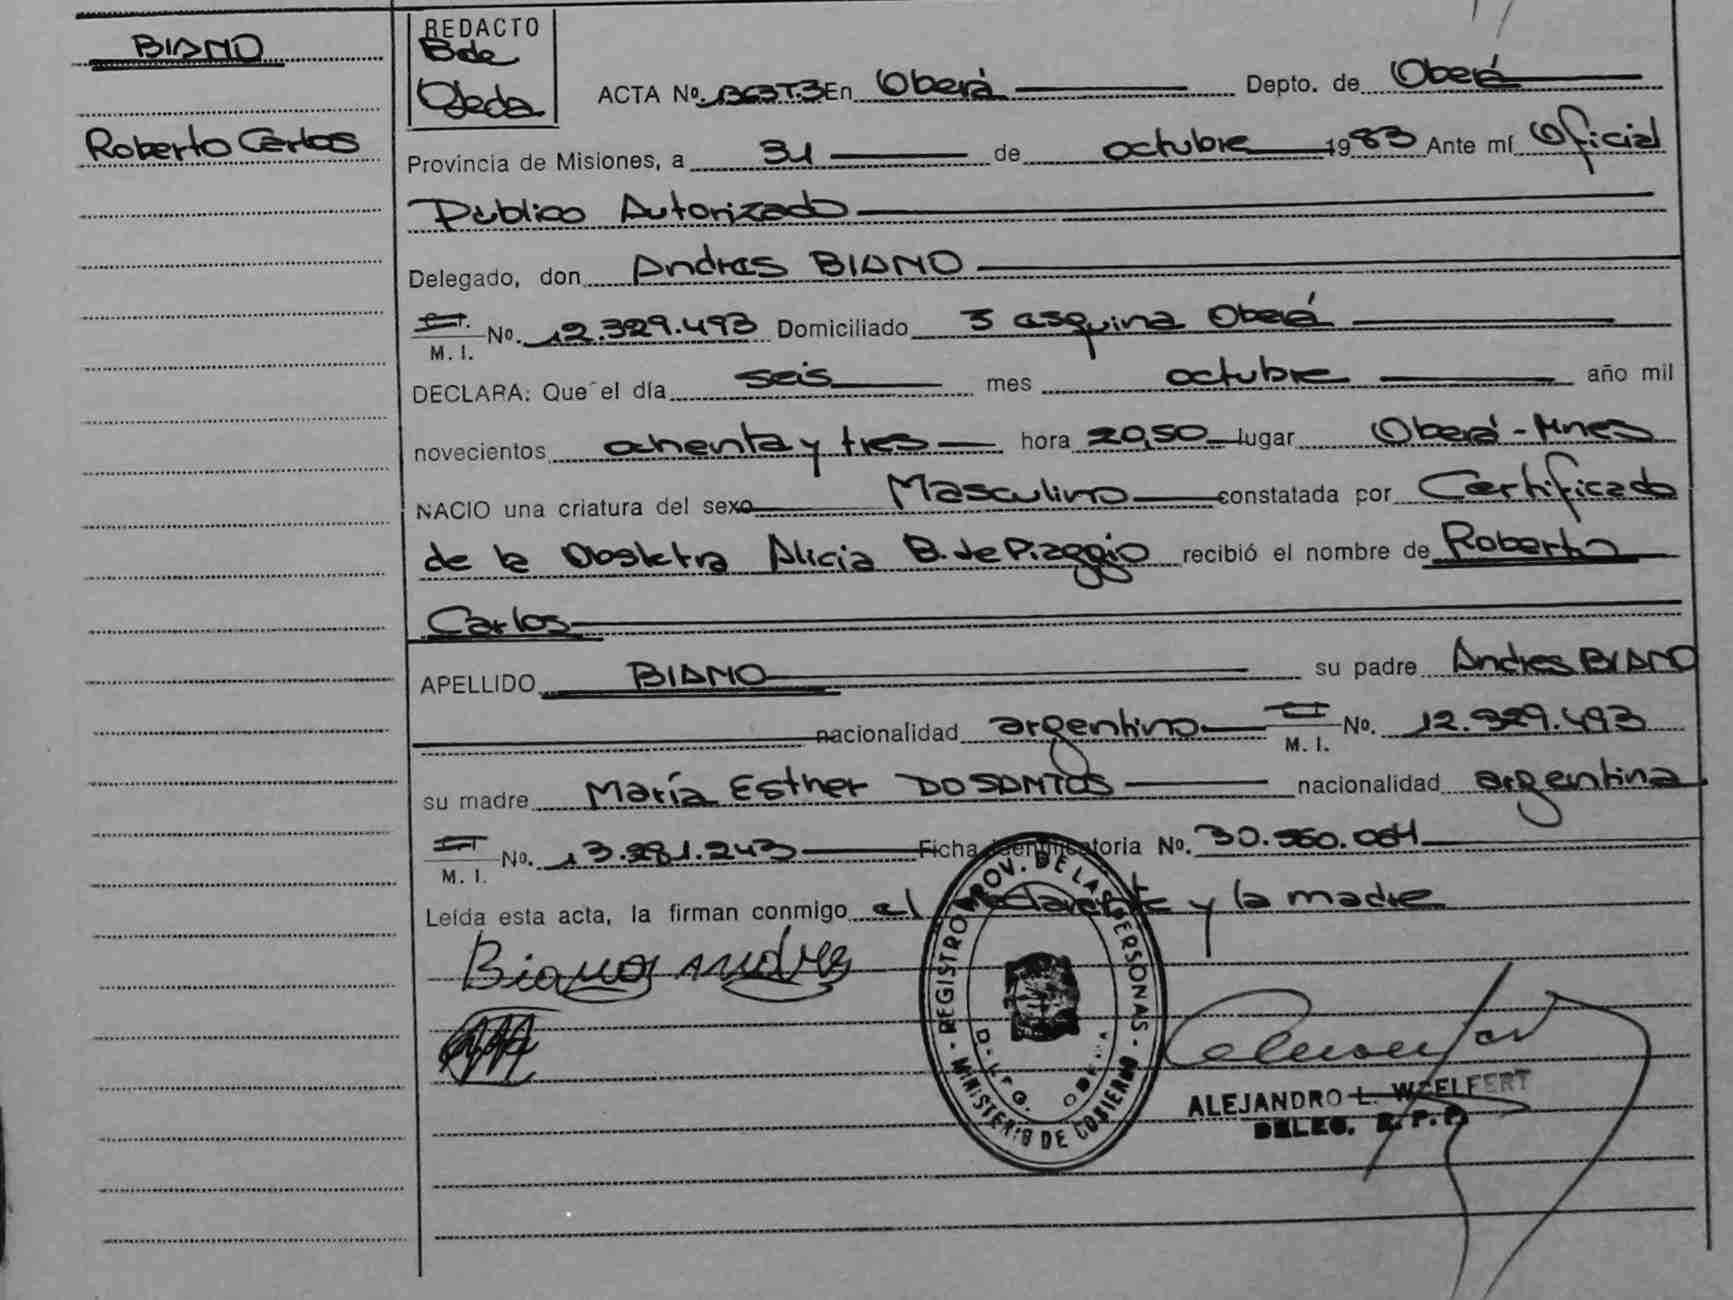 BIANO
Roberto Carlos
REDACTO
B de
Ojeda
ACTA No. 1363T.3 En Oberá Depto. de Oberá
Provincia de Misiones, a 31 de octubre 1983 Ante mí Oficial
Público Autorizado
Delegado, don Andres BIANO
C.I. M. I. No. 12.329.493 Domiciliado 3 esquina Oberá
DECLARA: Que el día seis mes octubre año mil
novecientos ochenta y tres hora 20,50 lugar Oberá - Mnes
NACIO una criatura del sexo Masculino constatada por Certificado
de la Obstetra Alicia B. de Piaggio recibió el nombre de Roberto
Carlos
APELLIDO BIANO su padre Andres BIANO
nacionalidad argentino C.I. M. I. No. 12.329.493
su madre María Esther DOSANTOS nacionalidad argentina
C.I. M. I. No. 13.281.243 Ficha identificatoria No. 30.360.064
Leída esta acta, la firman conmigo el declarante y la madre
Biano Andres
REGISTRO PROV. DE LAS PERSONAS - MINISTERIO DE GOBIERNO -
DELEG. OBERA
ALEJANDRO L. WEELFERT
DELEG. R. P. P.